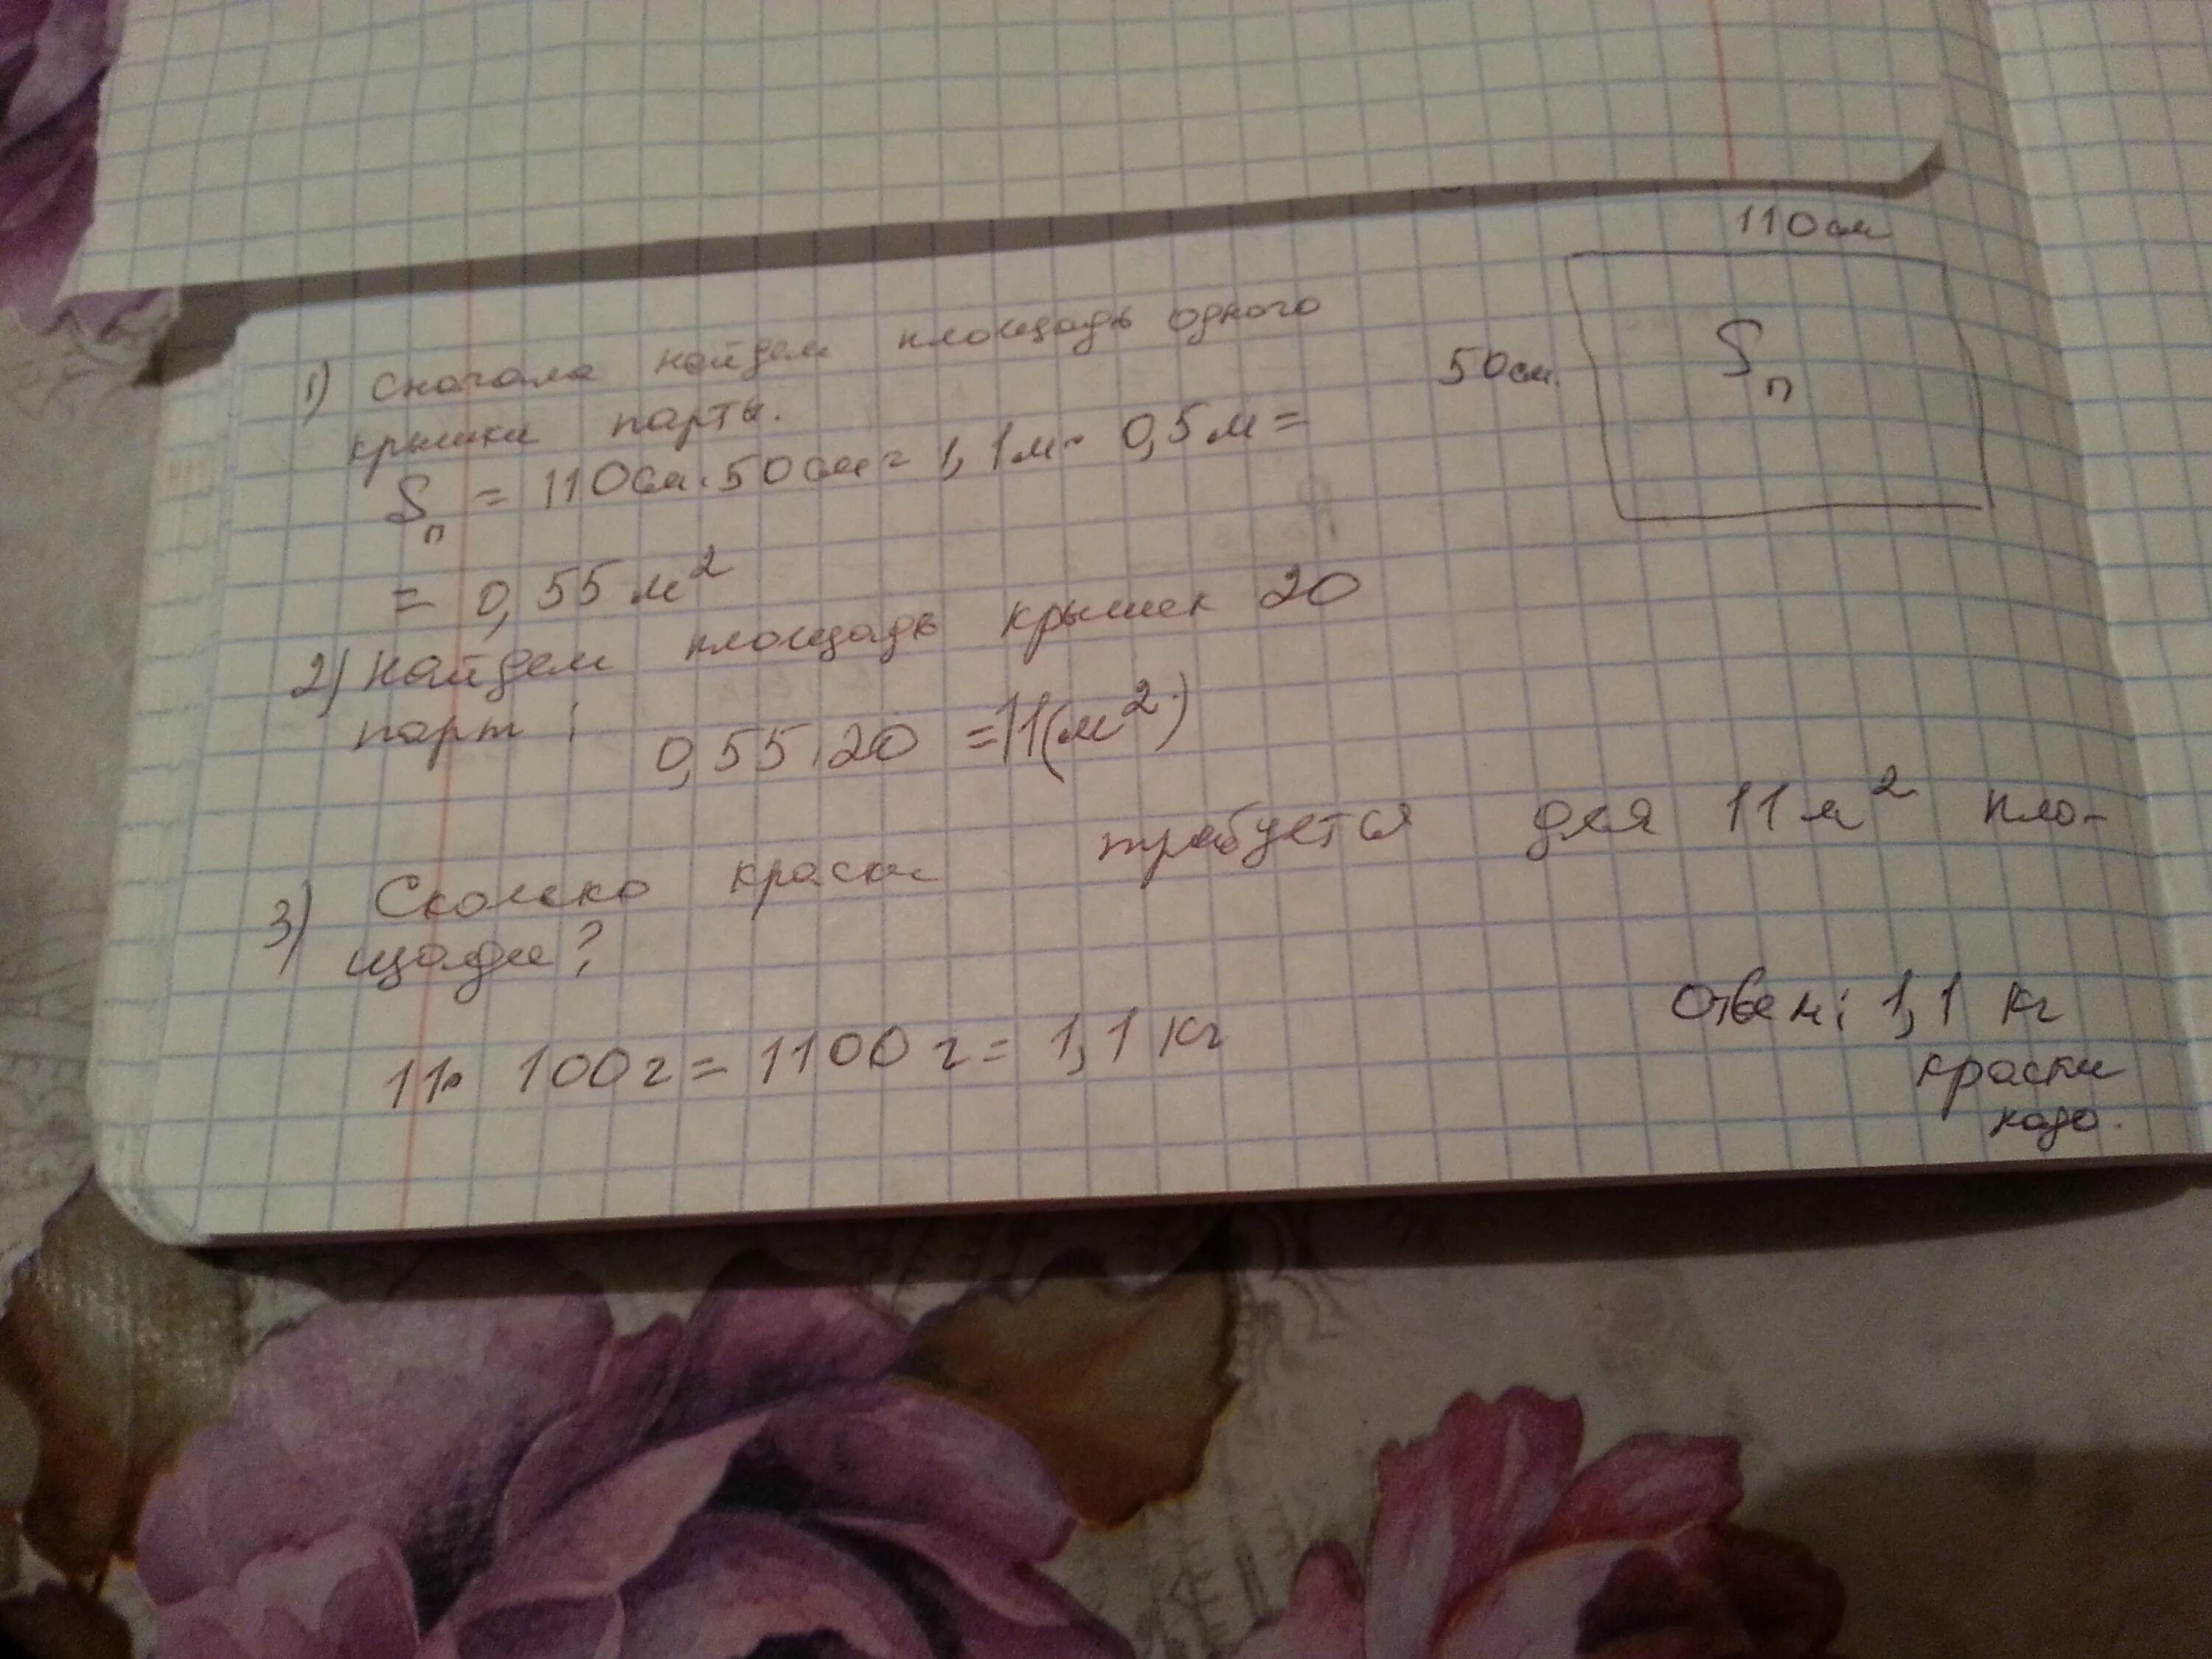 1) Сначала найдем площадь одного
крышки парты.
Sп = 110см·50см = 1,1м· 0,5м =
= 0,55м²
2) Найдем площадь крышек 20
парт:
0,55·20 =11(м²)
3) Сколько краски требуется для 11м² пло-
щади?
11· 100г = 1100г = 1,1 кг
110см
50см.
Sп
Ответ: 1,1 кг
краски
надо.